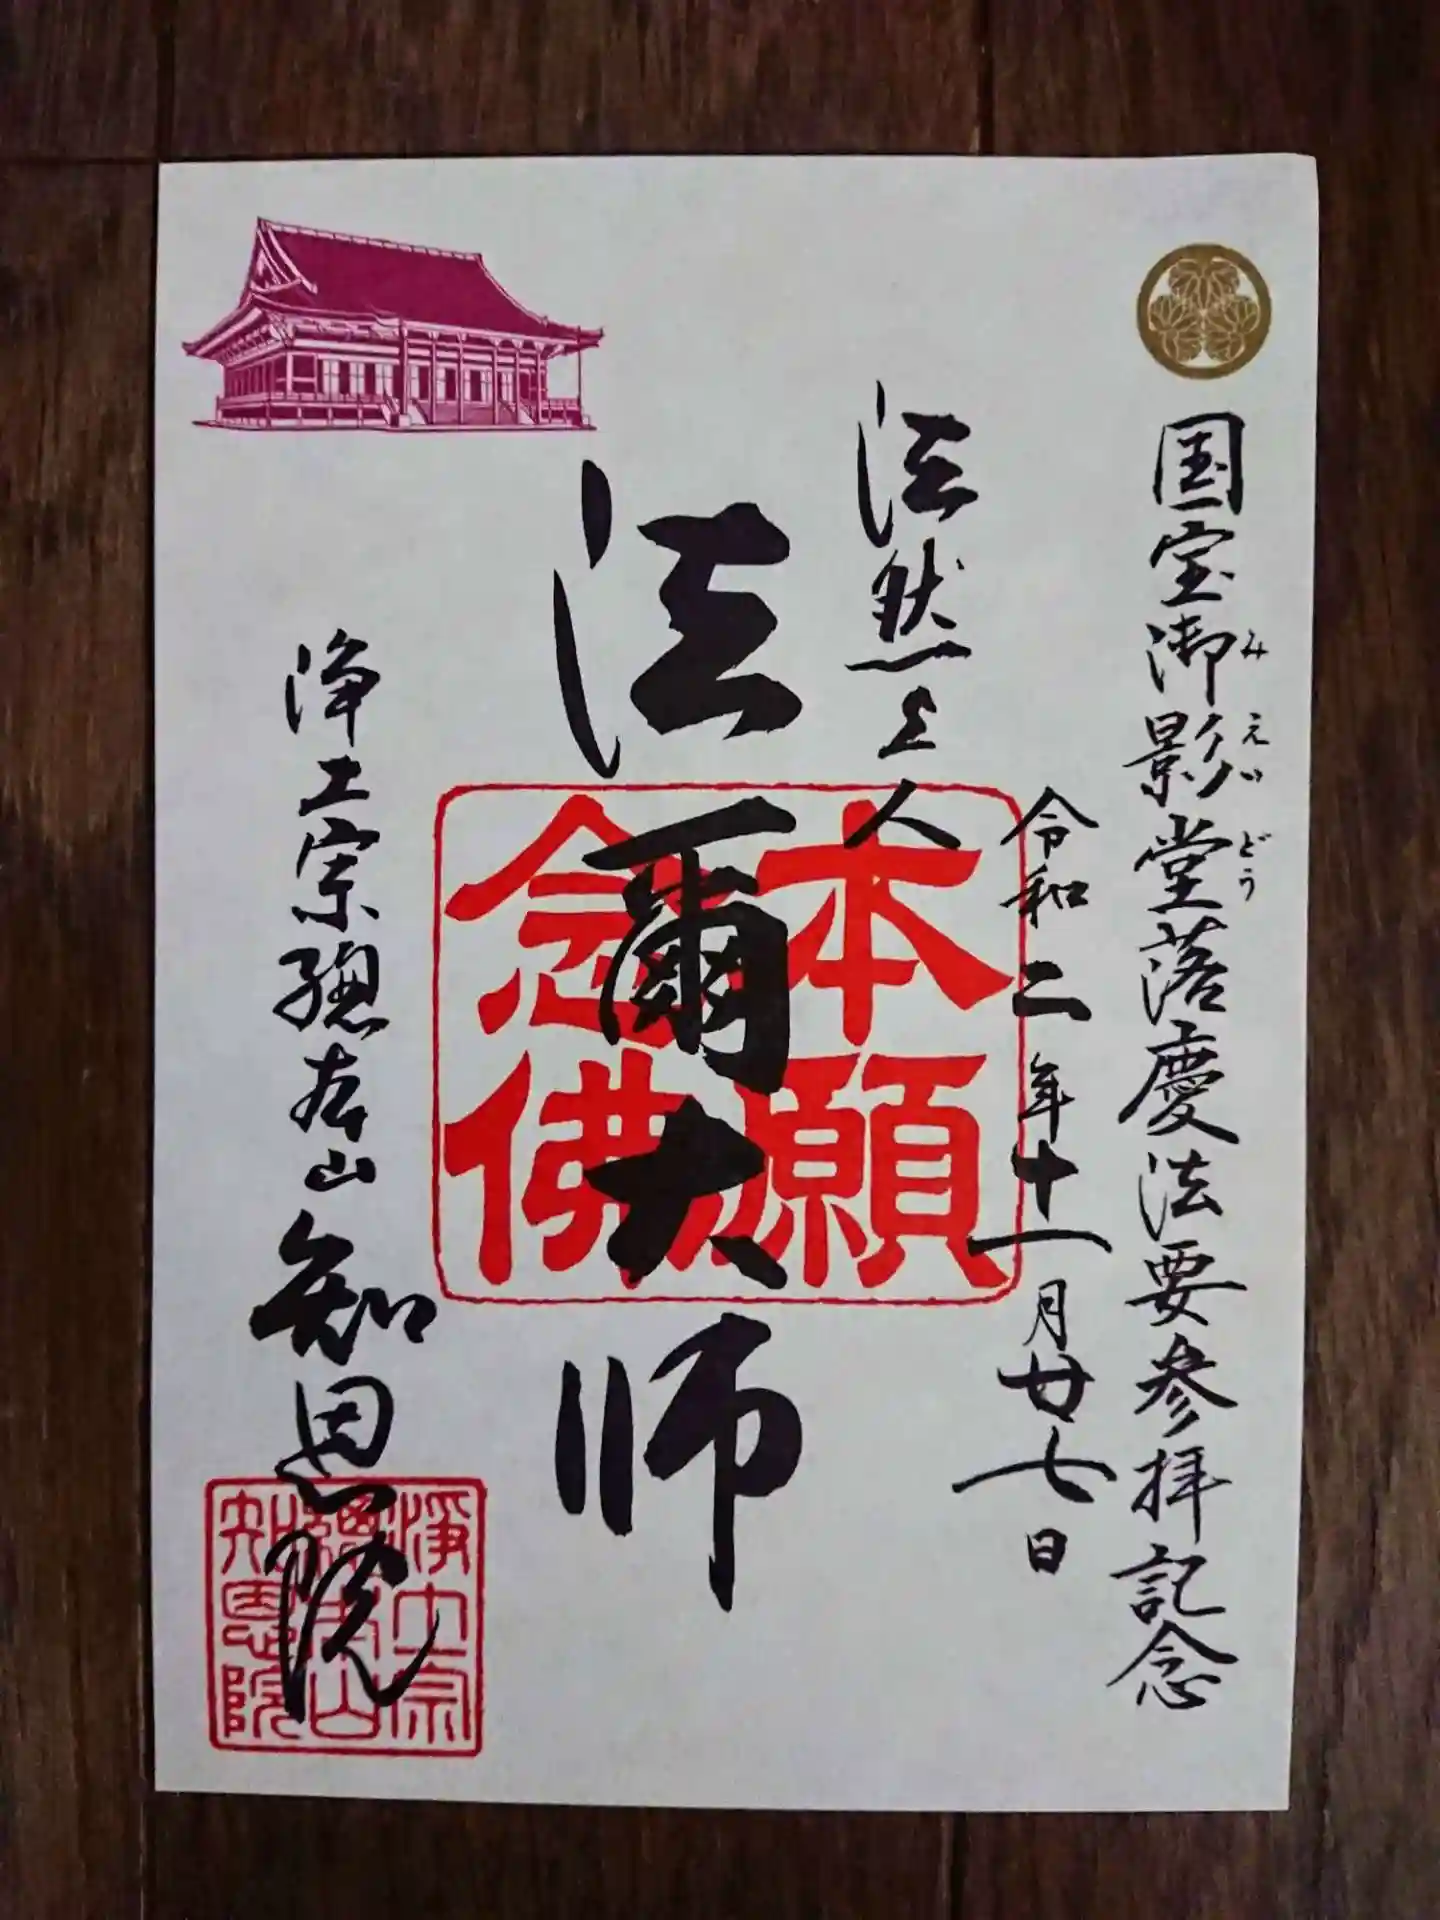 国宝御影堂落慶法要参拝記念
みえいどう
令和二年十一月廿七日
法然上人
法爾大師
本願
念佛
浄土宗總本山知恩院
浄土宗
總本山
知恩院